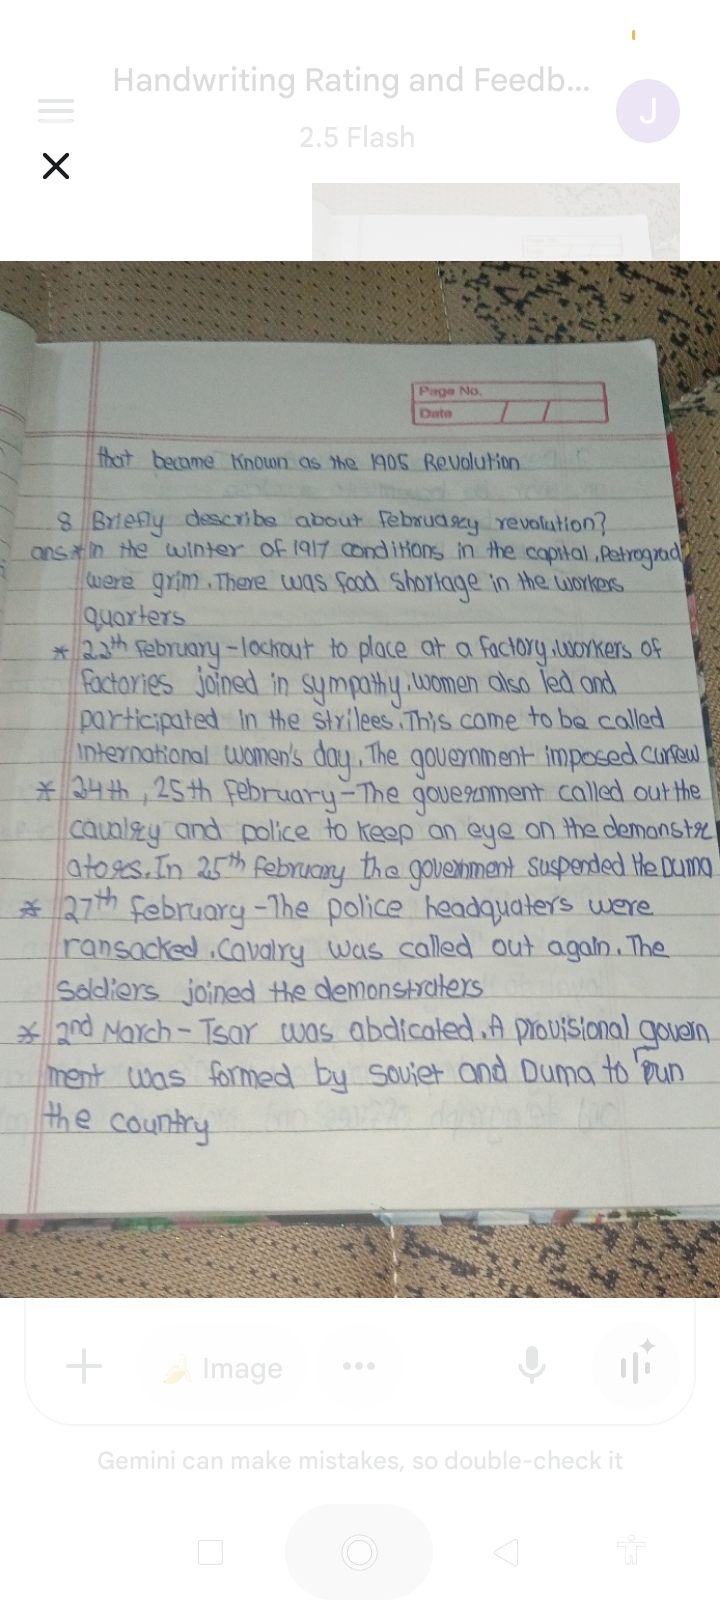 Handwriting Rating and Feedb...
J
2.5 Flash
Page No.
Date
that became known as the 1905 Revolution
8 Briefly describe about February revolution?
ans * In the winter of 1917 conditions in the capital, Petrograd
were grim. There was food shortage in the workers
quarters
* 22th February - lockout to place at a factory, workers of
factories joined in sympathy. women also led and
participated in the strilees. This came to be called
International women's day. The government imposed curfew
* 24th, 25th February - The government called out the
cavalry and police to keep an eye on the demonstr
ators. In 25th February the government suspended the Duma
* 27th February - The police headquaters were
ransacked. Cavalry was called out again. The
Soldiers joined the demonstraters
* 2nd March - Tsar was abdicated. A provisional govern
ment was formed by Soviet and Duma to run
the country
Image
Gemini can make mistakes, so double-check it